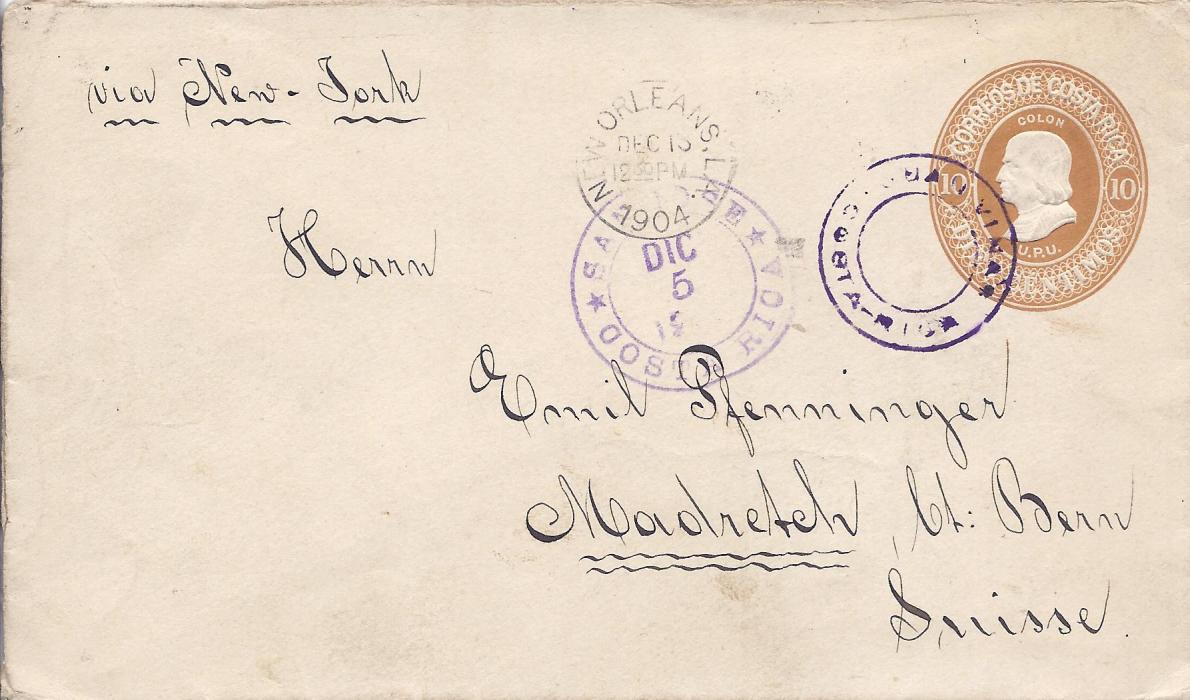 via New-York
CORREOS DE COSTA RICA
COLON
10 10
U.P.U.
CENTIMOS
NEW ORLEANS, LA.
DEC 13
12 30 PM
1904
JUAN VIÑAS
COSTA-RICA
DIC
5
19
COSTA RICA
Herrn
Emil Pfenninger
Madretsch Ct: Bern
Suisse